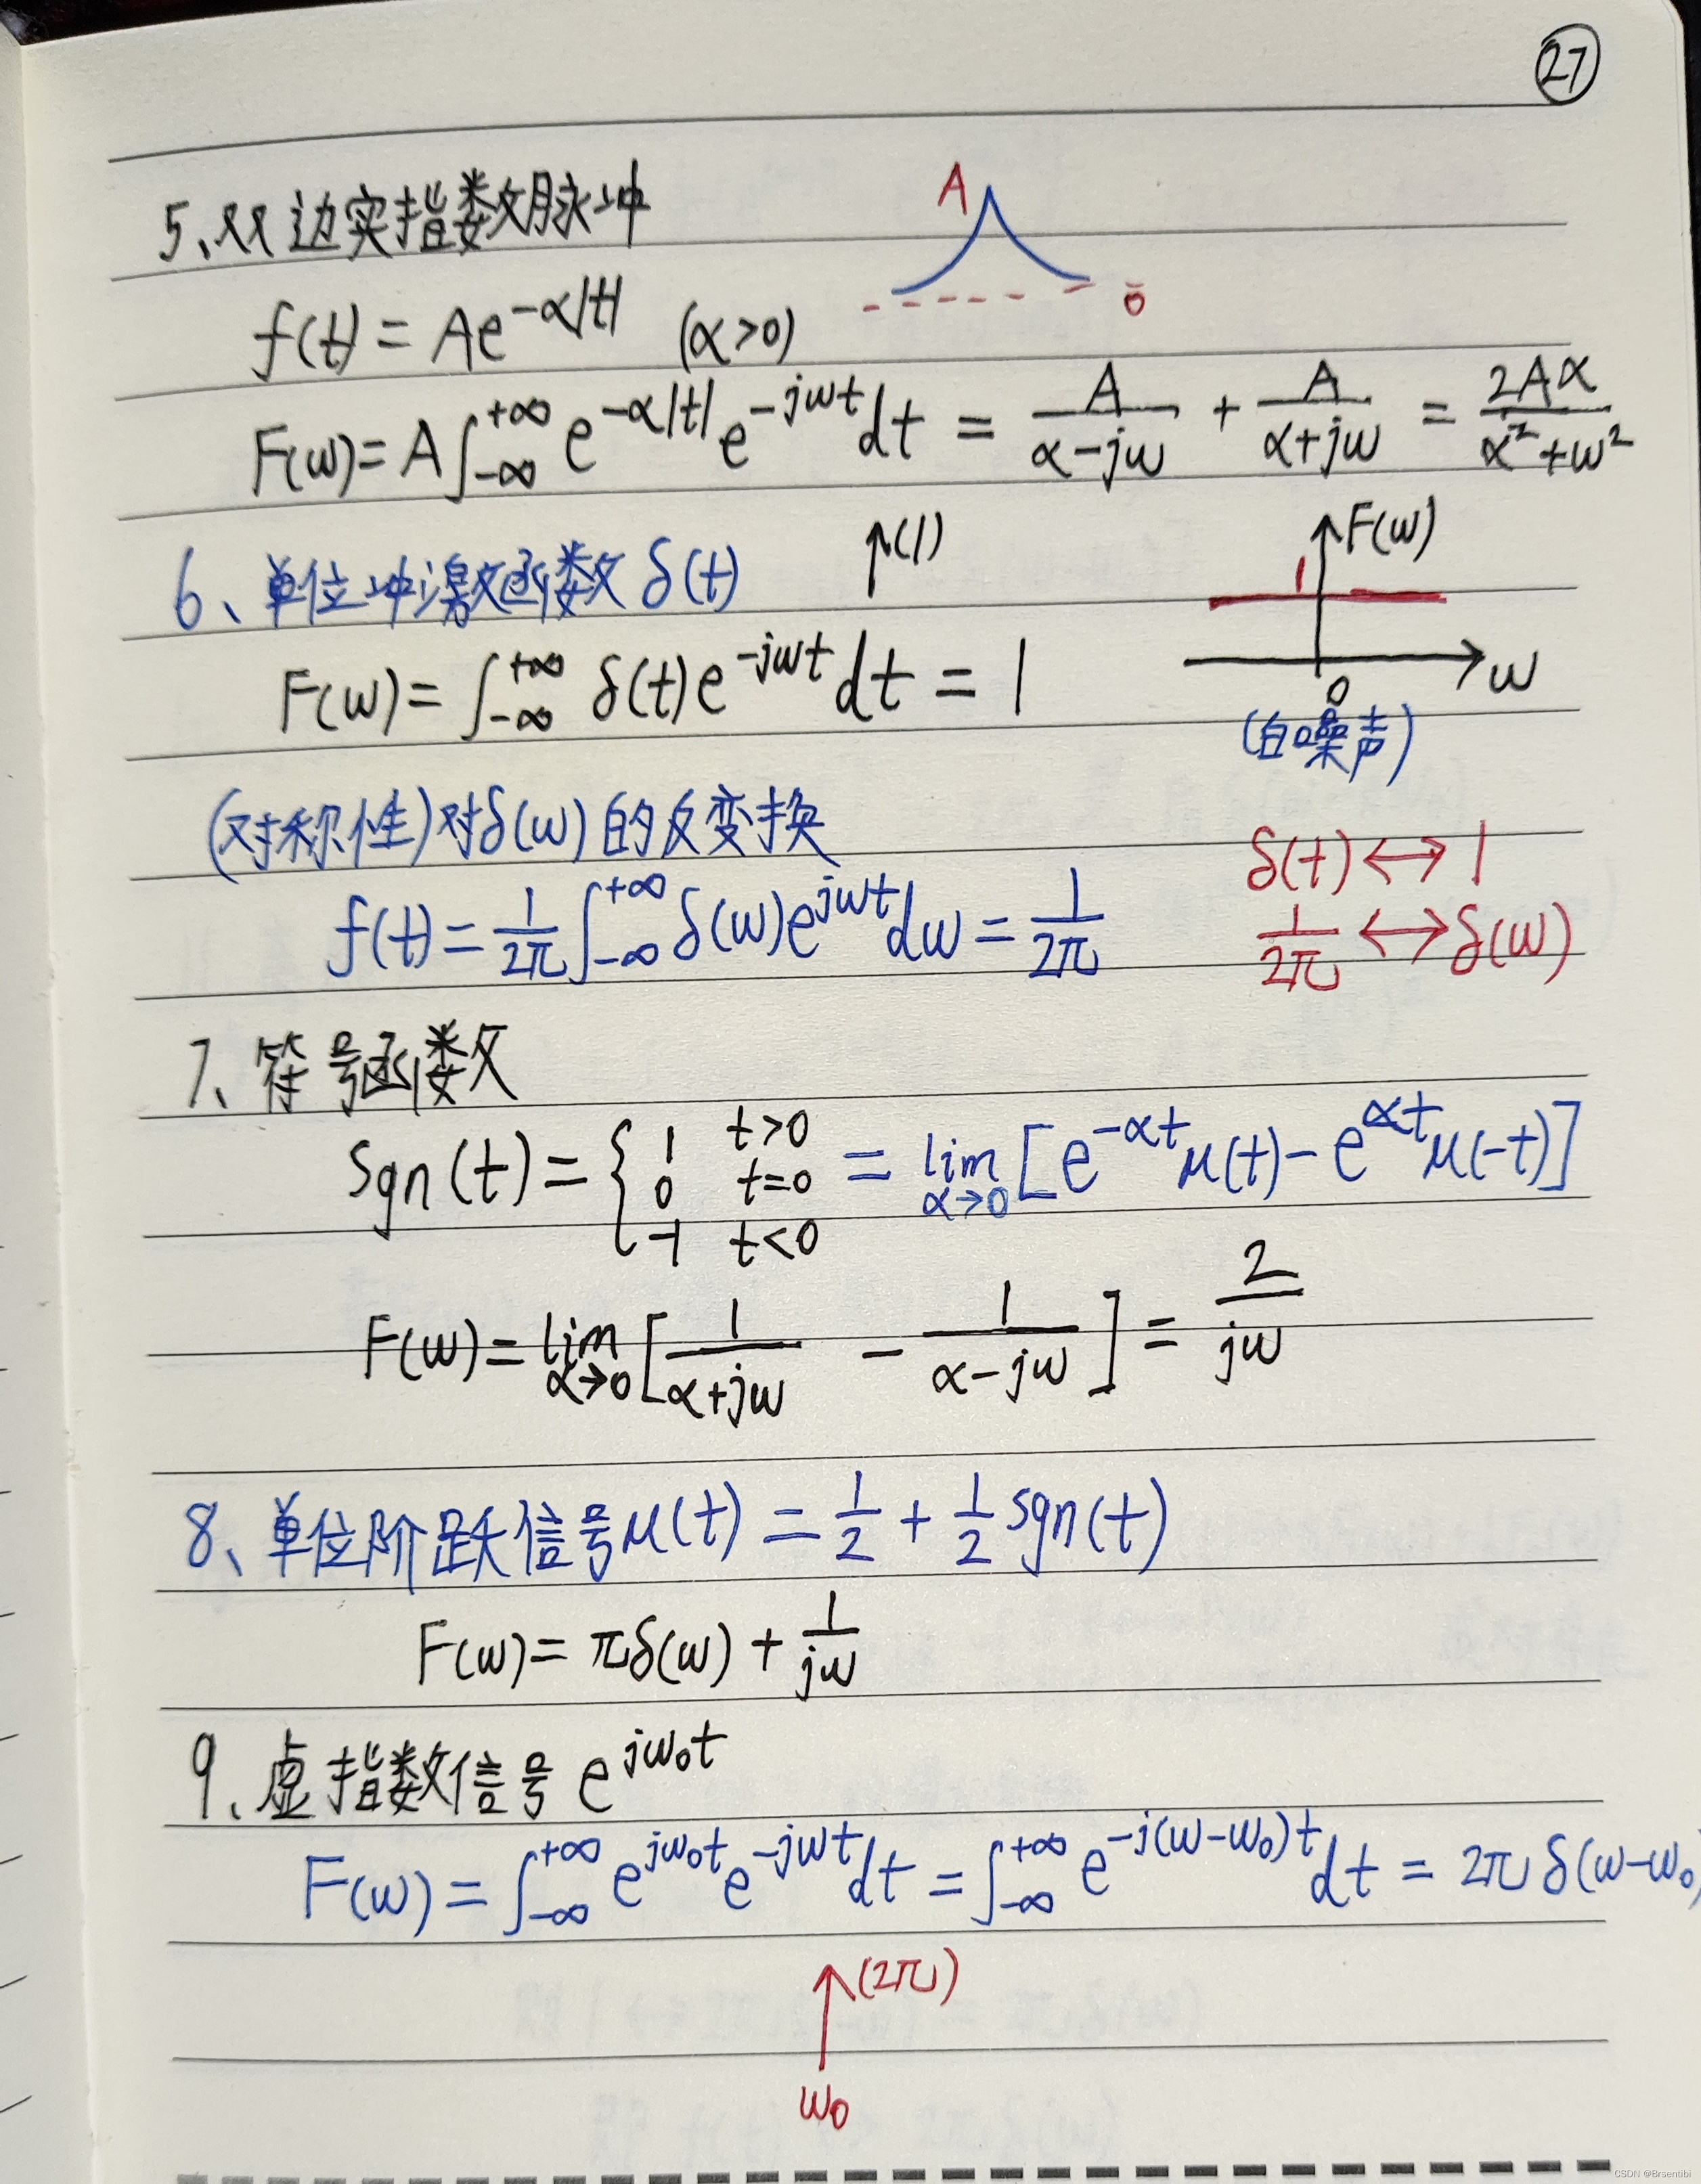 27
5、双边实指数脉冲
A
0
f(t) = Ae^{-α|t|} (α>0)
F(ω) = A∫_{-∞}^{+∞} e^{-α|t|} e^{-jωt} dt = \frac{A}{α-jω} + \frac{A}{α+jω} = \frac{2Aα}{α²+ω²}
6、单位冲激函数 δ(t)
(1)
F(ω)
1
F(ω) = ∫_{-∞}^{+∞} δ(t)e^{-jωt} dt = 1
ω
0
(白噪声)
(对称性)对δ(ω)的反变换
f(t) = \frac{1}{2π}∫_{-∞}^{+∞} δ(ω)e^{jωt} dω = \frac{1}{2π}
δ(t) ↔ 1
\frac{1}{2π} ↔ δ(ω)
7、符号函数
Sgn(t) = { 1 t>0 0 t=0 -1 t<0 = lim_{α→0} [e^{-αt}μ(t) - e^{αt}μ(-t)]
F(ω) = lim_{α→0} [\frac{1}{α+jω} - \frac{1}{α-jω}] = \frac{2}{jω}
8、单位阶跃信号μ(t) = \frac{1}{2} + \frac{1}{2}sgn(t)
F(ω) = πδ(ω) + \frac{1}{jω}
9、虚指数信号 e^{jω₀t}
F(ω) = ∫_{-∞}^{+∞} e^{jω₀t} e^{-jωt} dt = ∫_{-∞}^{+∞} e^{-j(ω-ω₀)t} dt = 2πδ(ω-ω₀)
(2π)
ω₀
CSDN @Brsentibi